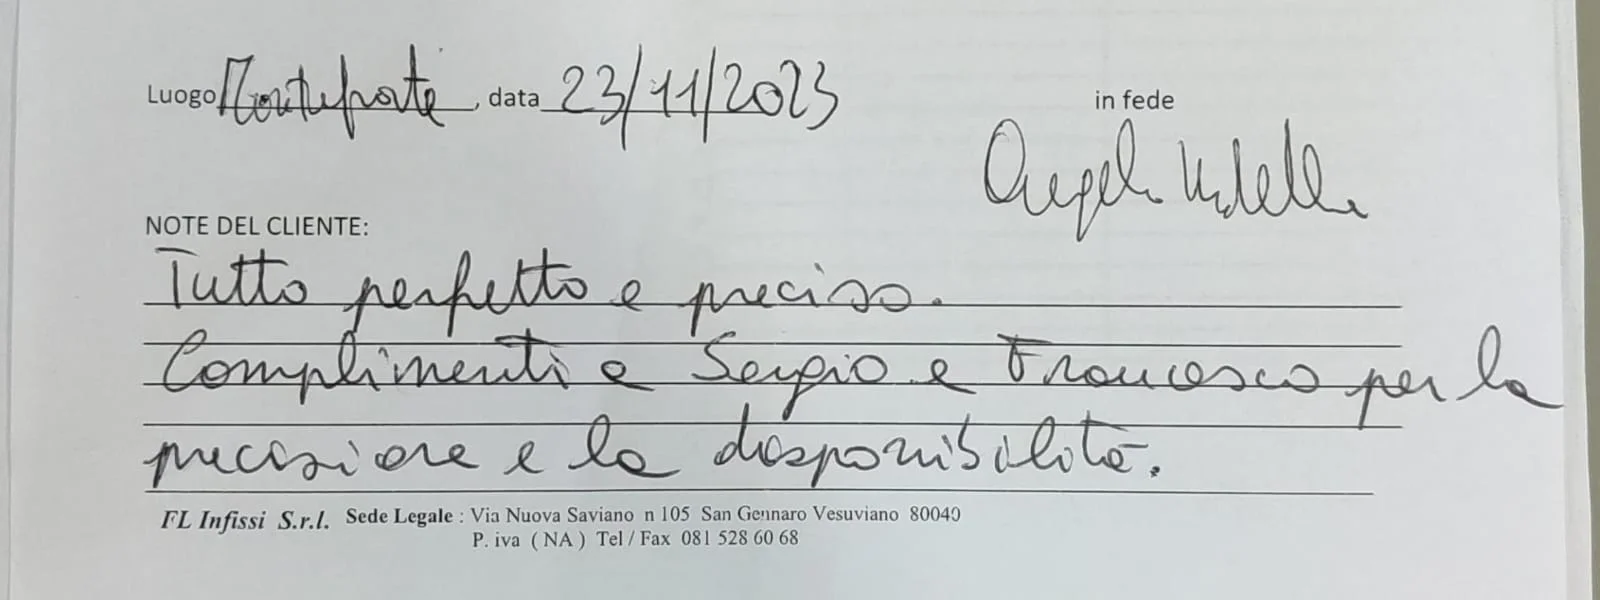 Luogo Monteforte, data 23/11/2023
in fede
NOTE DEL CLIENTE:
Tutto perfetto e preciso.
Complimenti a Sergio e Francesco per la
precisione e la disponibilità.
FL Infissi S.r.l. Sede Legale : Via Nuova Saviano n 105 San Gennaro Vesuviano 80040
P. iva ( NA ) Tel / Fax 081 528 60 68